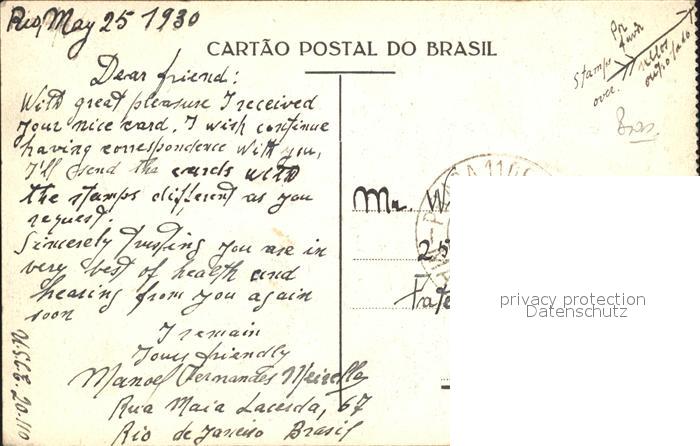 Rio, May 25 1930
CARTÃO POSTAL DO BRASIL
Dear friend:
With great pleasure I received
your nice card. I wish continue
having correspondence with you,
I'll send the cards with
the stamps different as you
request.
Sincerely trusting you are in
very best of health and
hearing from you again
soon
I remain
Yours friendly
Manoel Fernandes
Rua Maia Lacerda, 67
Rio de Janeiro Brasil
Stamps
over.
Por
favor
Mr. W
25
privacy protection
Datenschutz